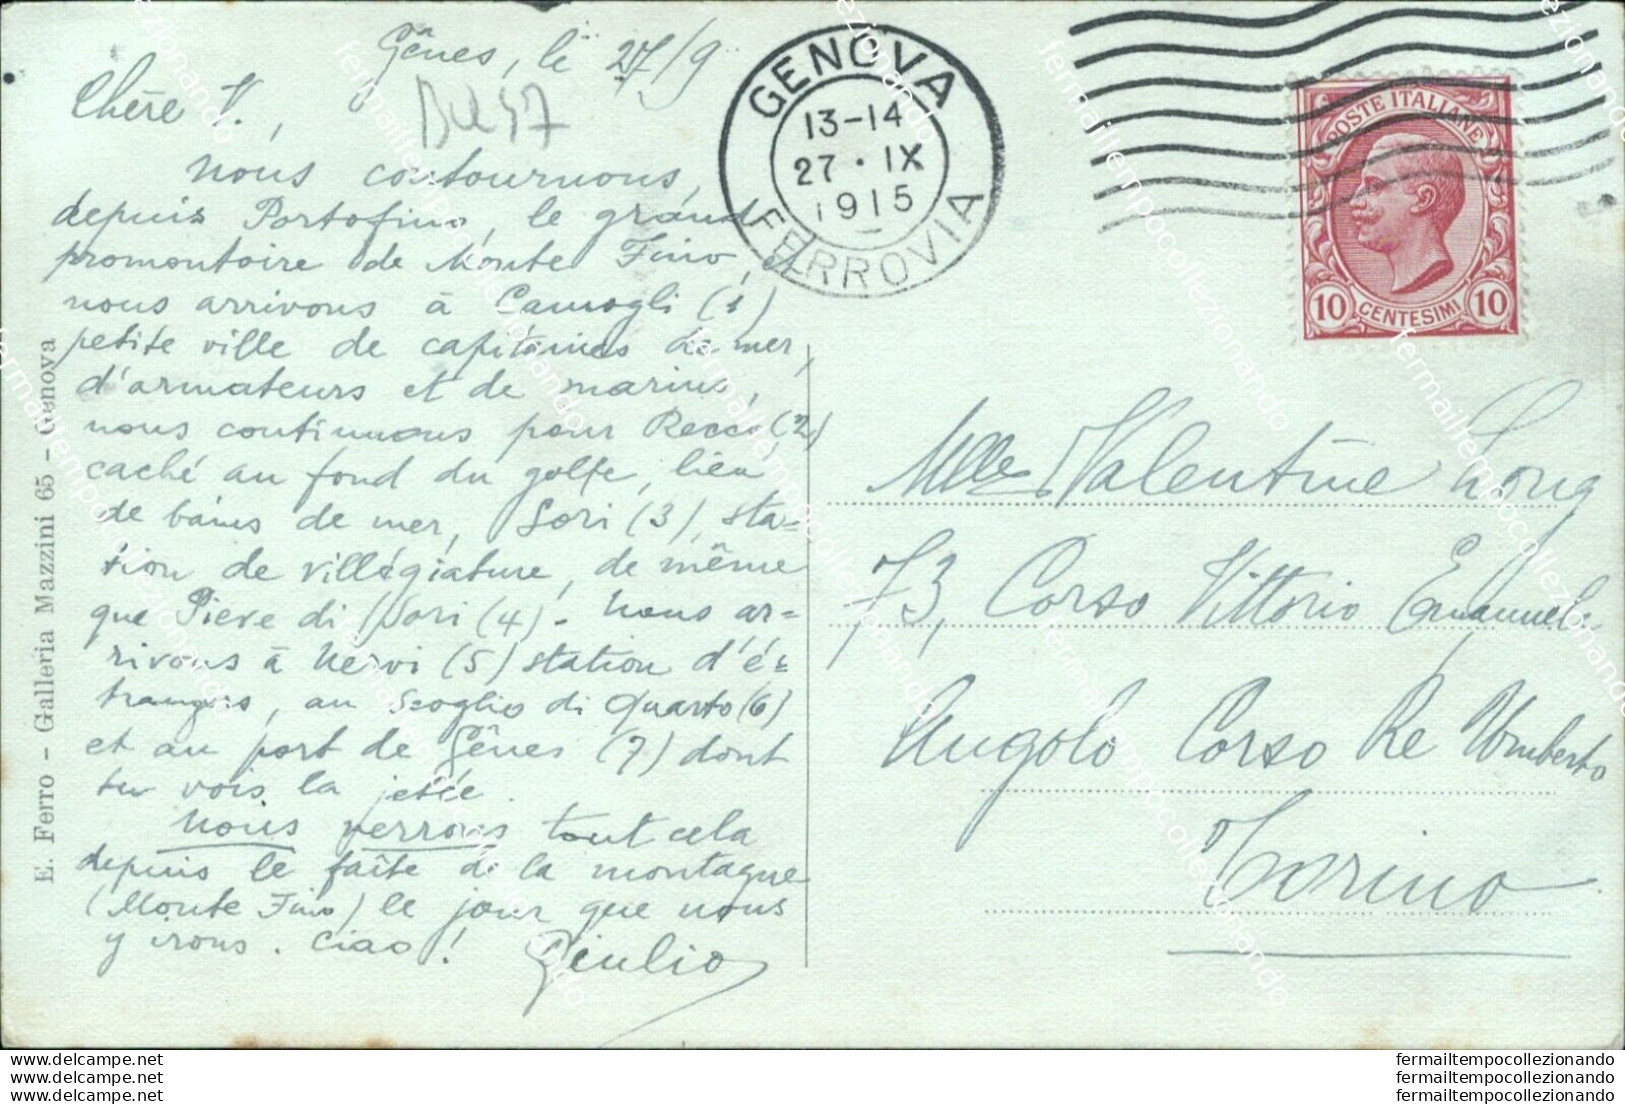 Gênes, le 27/9
Chère V.,
nous contournons,
depuis Portofino, le grand
promontoire de Monte Fino, et
nous arrivons à Camogli (1)
petite ville de capitaines de mer,
d'armateurs et de marins,
nous continuons pour Recco (2)
caché au fond du golfe, lieu
de bains de mer, Sori (3), sta=
tion de villégiature, de même
que Pieve di Sori (4) - nous ar=
rivons à Nervi (5) station d'é=
trangers, au Scoglio di Quarto (6)
et au port de Gênes (7) dont
tu vois la jetée.
Nous verrons tout cela
depuis le faîte de la montagne
(Monte Fino) le jour que nous
y irons. Ciao!
Giulio
E. Ferro - Galleria Mazzini 65 - Genova
GENOVA
13-14
27 · IX
1915
FERROVIA
POSTE ITALIANE
10 CENTESIMI 10
Mlle Valentine Long
73, Corso Vittorio Emanuele
Angolo Corso Re Umberto
Torino
fermailtempocollezionando
fermailtempocollezionando
fermailtempocollezionando
fermailtempocollezionando
fermailtempocollezionando
fermailtempocollezionando